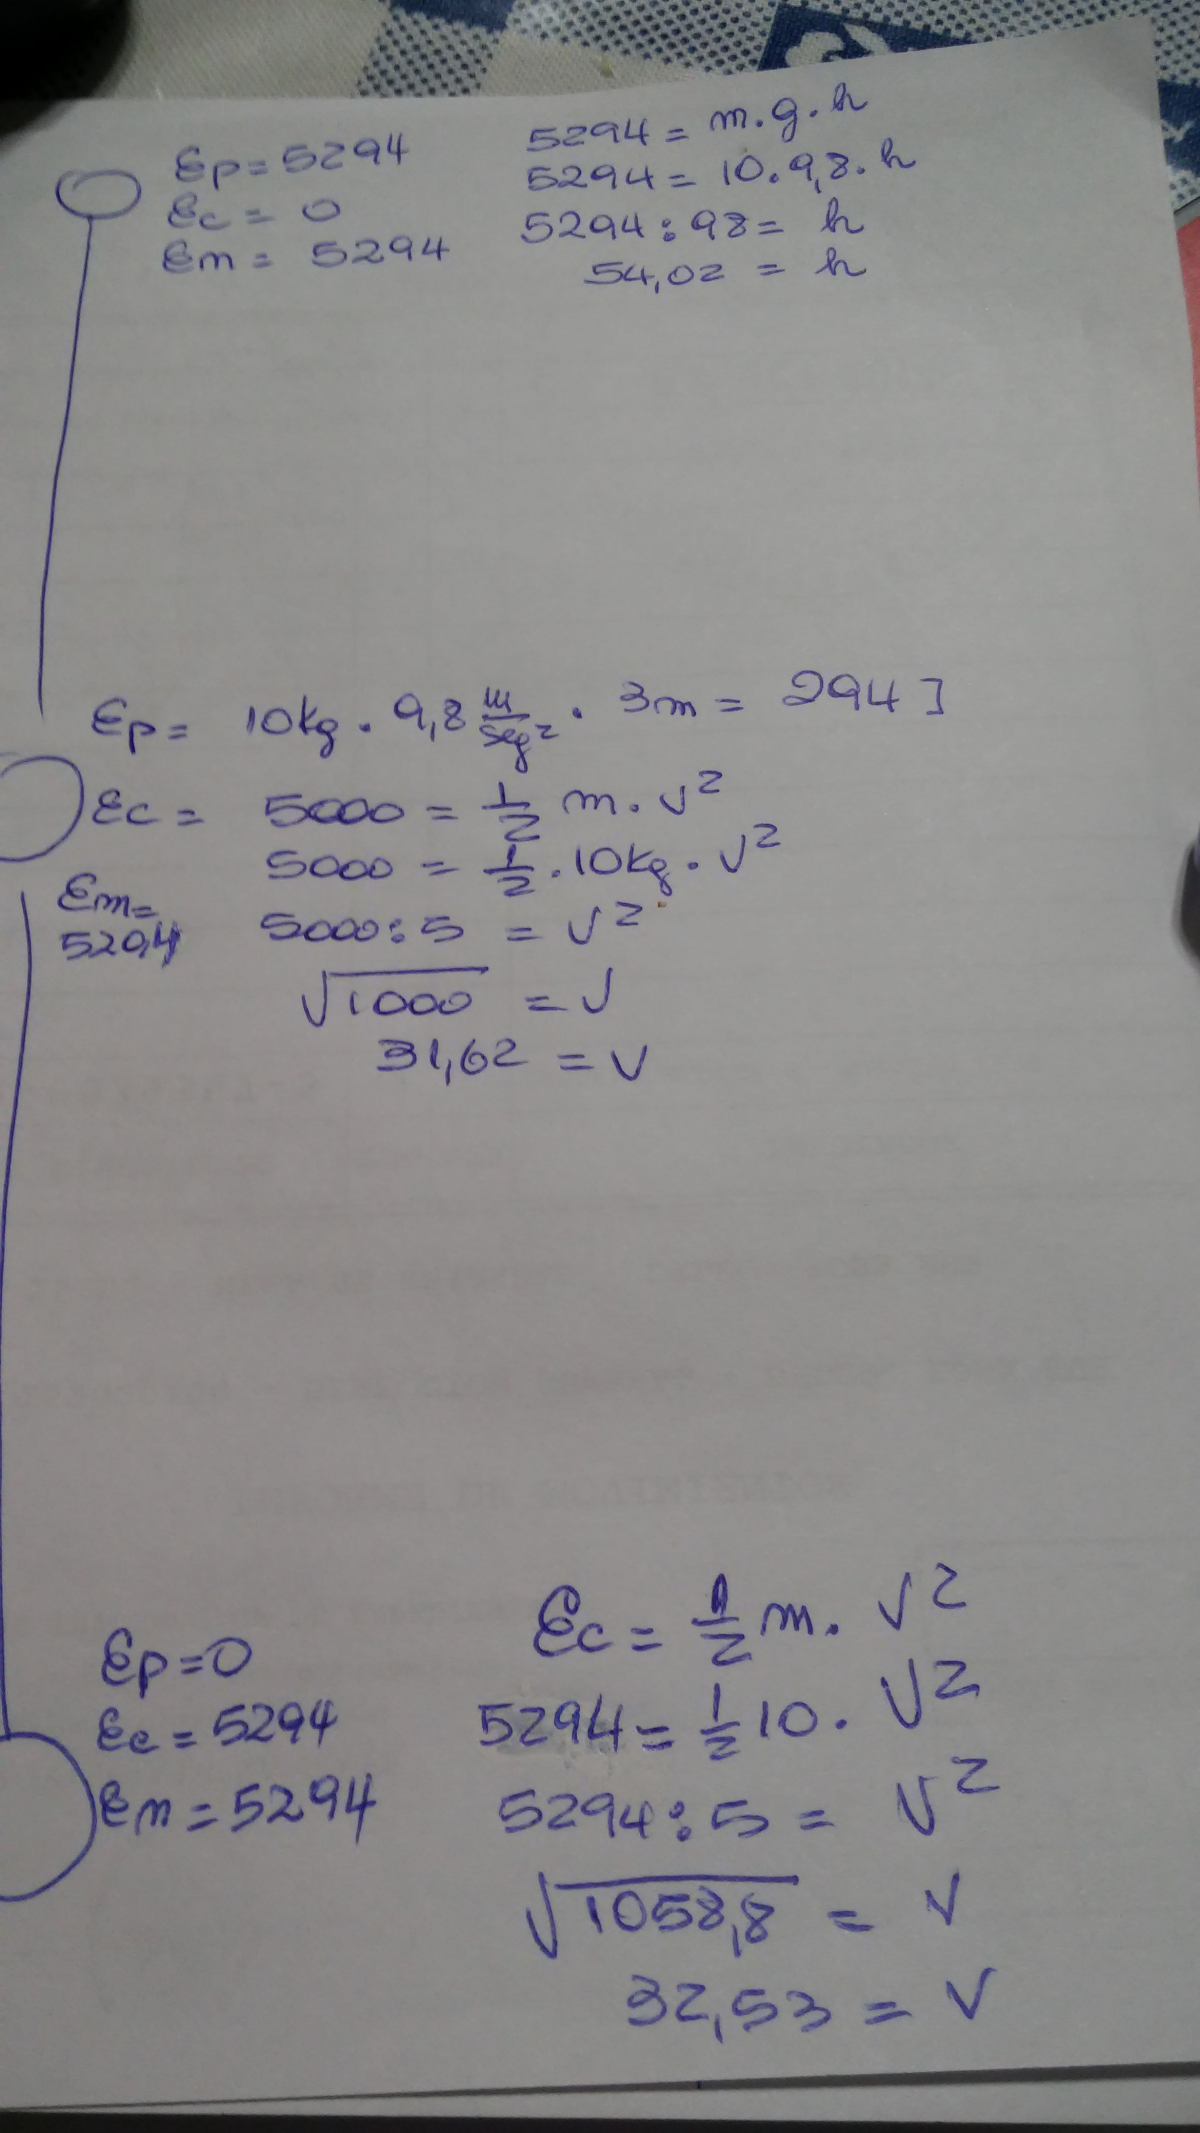 Ep = 5294
Ec = 0
Em = 5294
5294 = m.g.h
5294 = 10.9,8.h
5294:98 = h
54,02 = h
Ep = 10kg . 9,8 m/seg² . 3m = 294 J
Ec = 5000 = 1/2 m. v²
5000 = 1/2 . 10kg . v²
Em =
5294
5000:5 = v²
√1000 = v
31,62 = v
Ep = 0
Ec = 5294
Em = 5294
Ec = 1/2 m. v²
5294 = 1/2 10. v²
5294:5 = v²
√1058,8 = v
32,53 = v